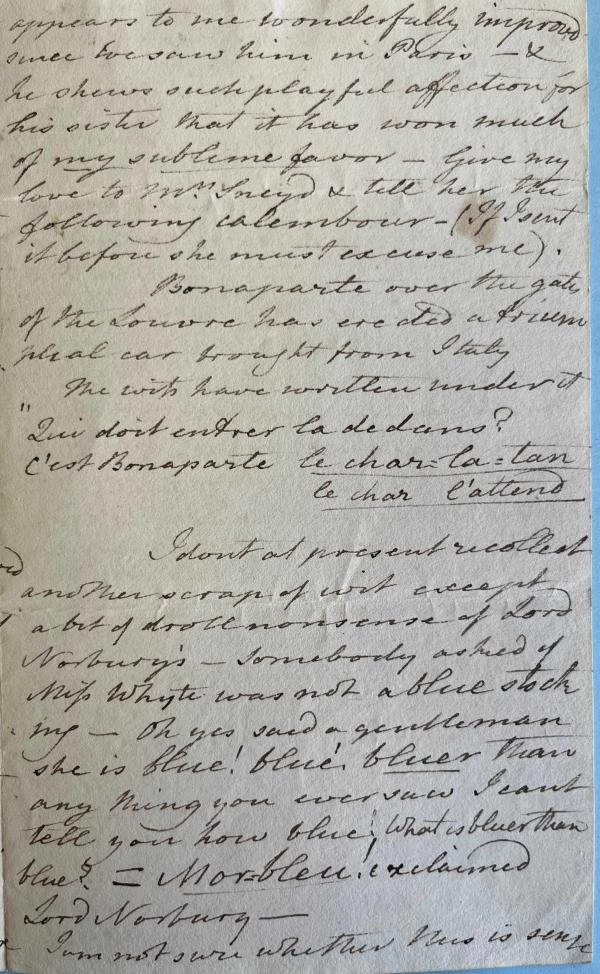 appears to me wonderfully improved
since we saw him in Paris – &
he shews such playful affection for
his sister that it has won much
of my sublime favor – Give my
love to Mrs Sneyd & tell her the
following calembour – (If I sent
it before she must excuse me).
Bonaparte over the gate
of the Louvre has erected a trium
phal car brought from Italy
The wits have written under it
"Qui doit entrer la dedans?
C'est Bonaparte le char=la=tan
le char l'attend
I dont at present recollect
another scrap of wit except
a bit of droll nonsense of Lord
Norbury's – Somebody asked if
Miss Whyte was not a blue stock
ing – Oh yes said a gentleman
she is blue! blue! bluer than
any thing you ever saw I cant
tell you how blue! What is bluer than
blue? = Mor=bleu! exclaimed
Lord Norbury –
I am not sure whether this is sense